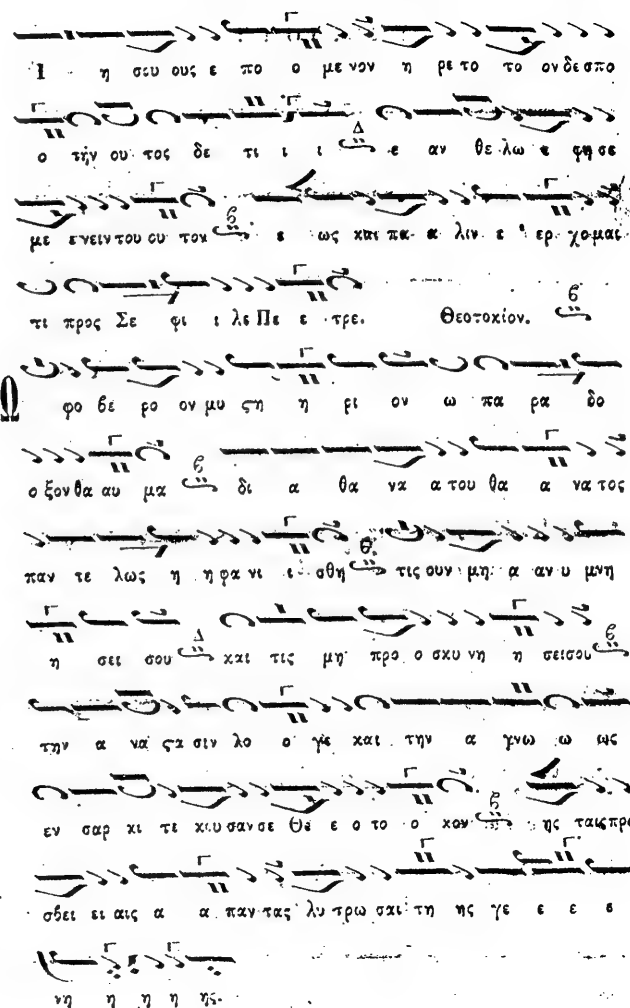 Ι η σου ους ε πο ο με νον η ρε το το ον δε σπο
ο την ου τος δε τι ι ι Δ ε αν θε λω ε φη σε
με ε νειν του ου τον ε ως και πα α λιν ε ερ χο μαι
τι προς Σε φι ι λε Πε ε τρε. Θεοτοκίον.
Ω φο βε ρο ον μυ ςη η ρι ον ω πα ρα δο
ο ξον θα αυ μα δι α θα να α του θα α να τος
παν τε λως η η φα νι ι σθη τις ουν μη α αν υ μνη
η σει σου Δ και τις μη προ ο σκυ νη η σει σου
την α να ςα σιν λο ο γε και την α γνω ω ως
εν σαρ κι τε κου σαν σε Θε ε ο το ο κον ης ταις πρε
σβει ει αις α α παν τας λυ τρω σαι τη ης γε ε ε ε
νη η η η ης.